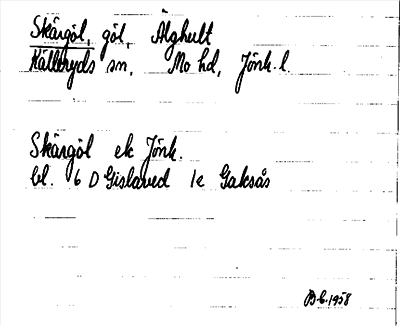 Skärgöl, göl, Älghult
Källeryds sn, Mo hd, Jönk. l.
Skärgöl ek Jönk.
bl. 6 D Gislaved 1e Gaksås
B-b. 1958